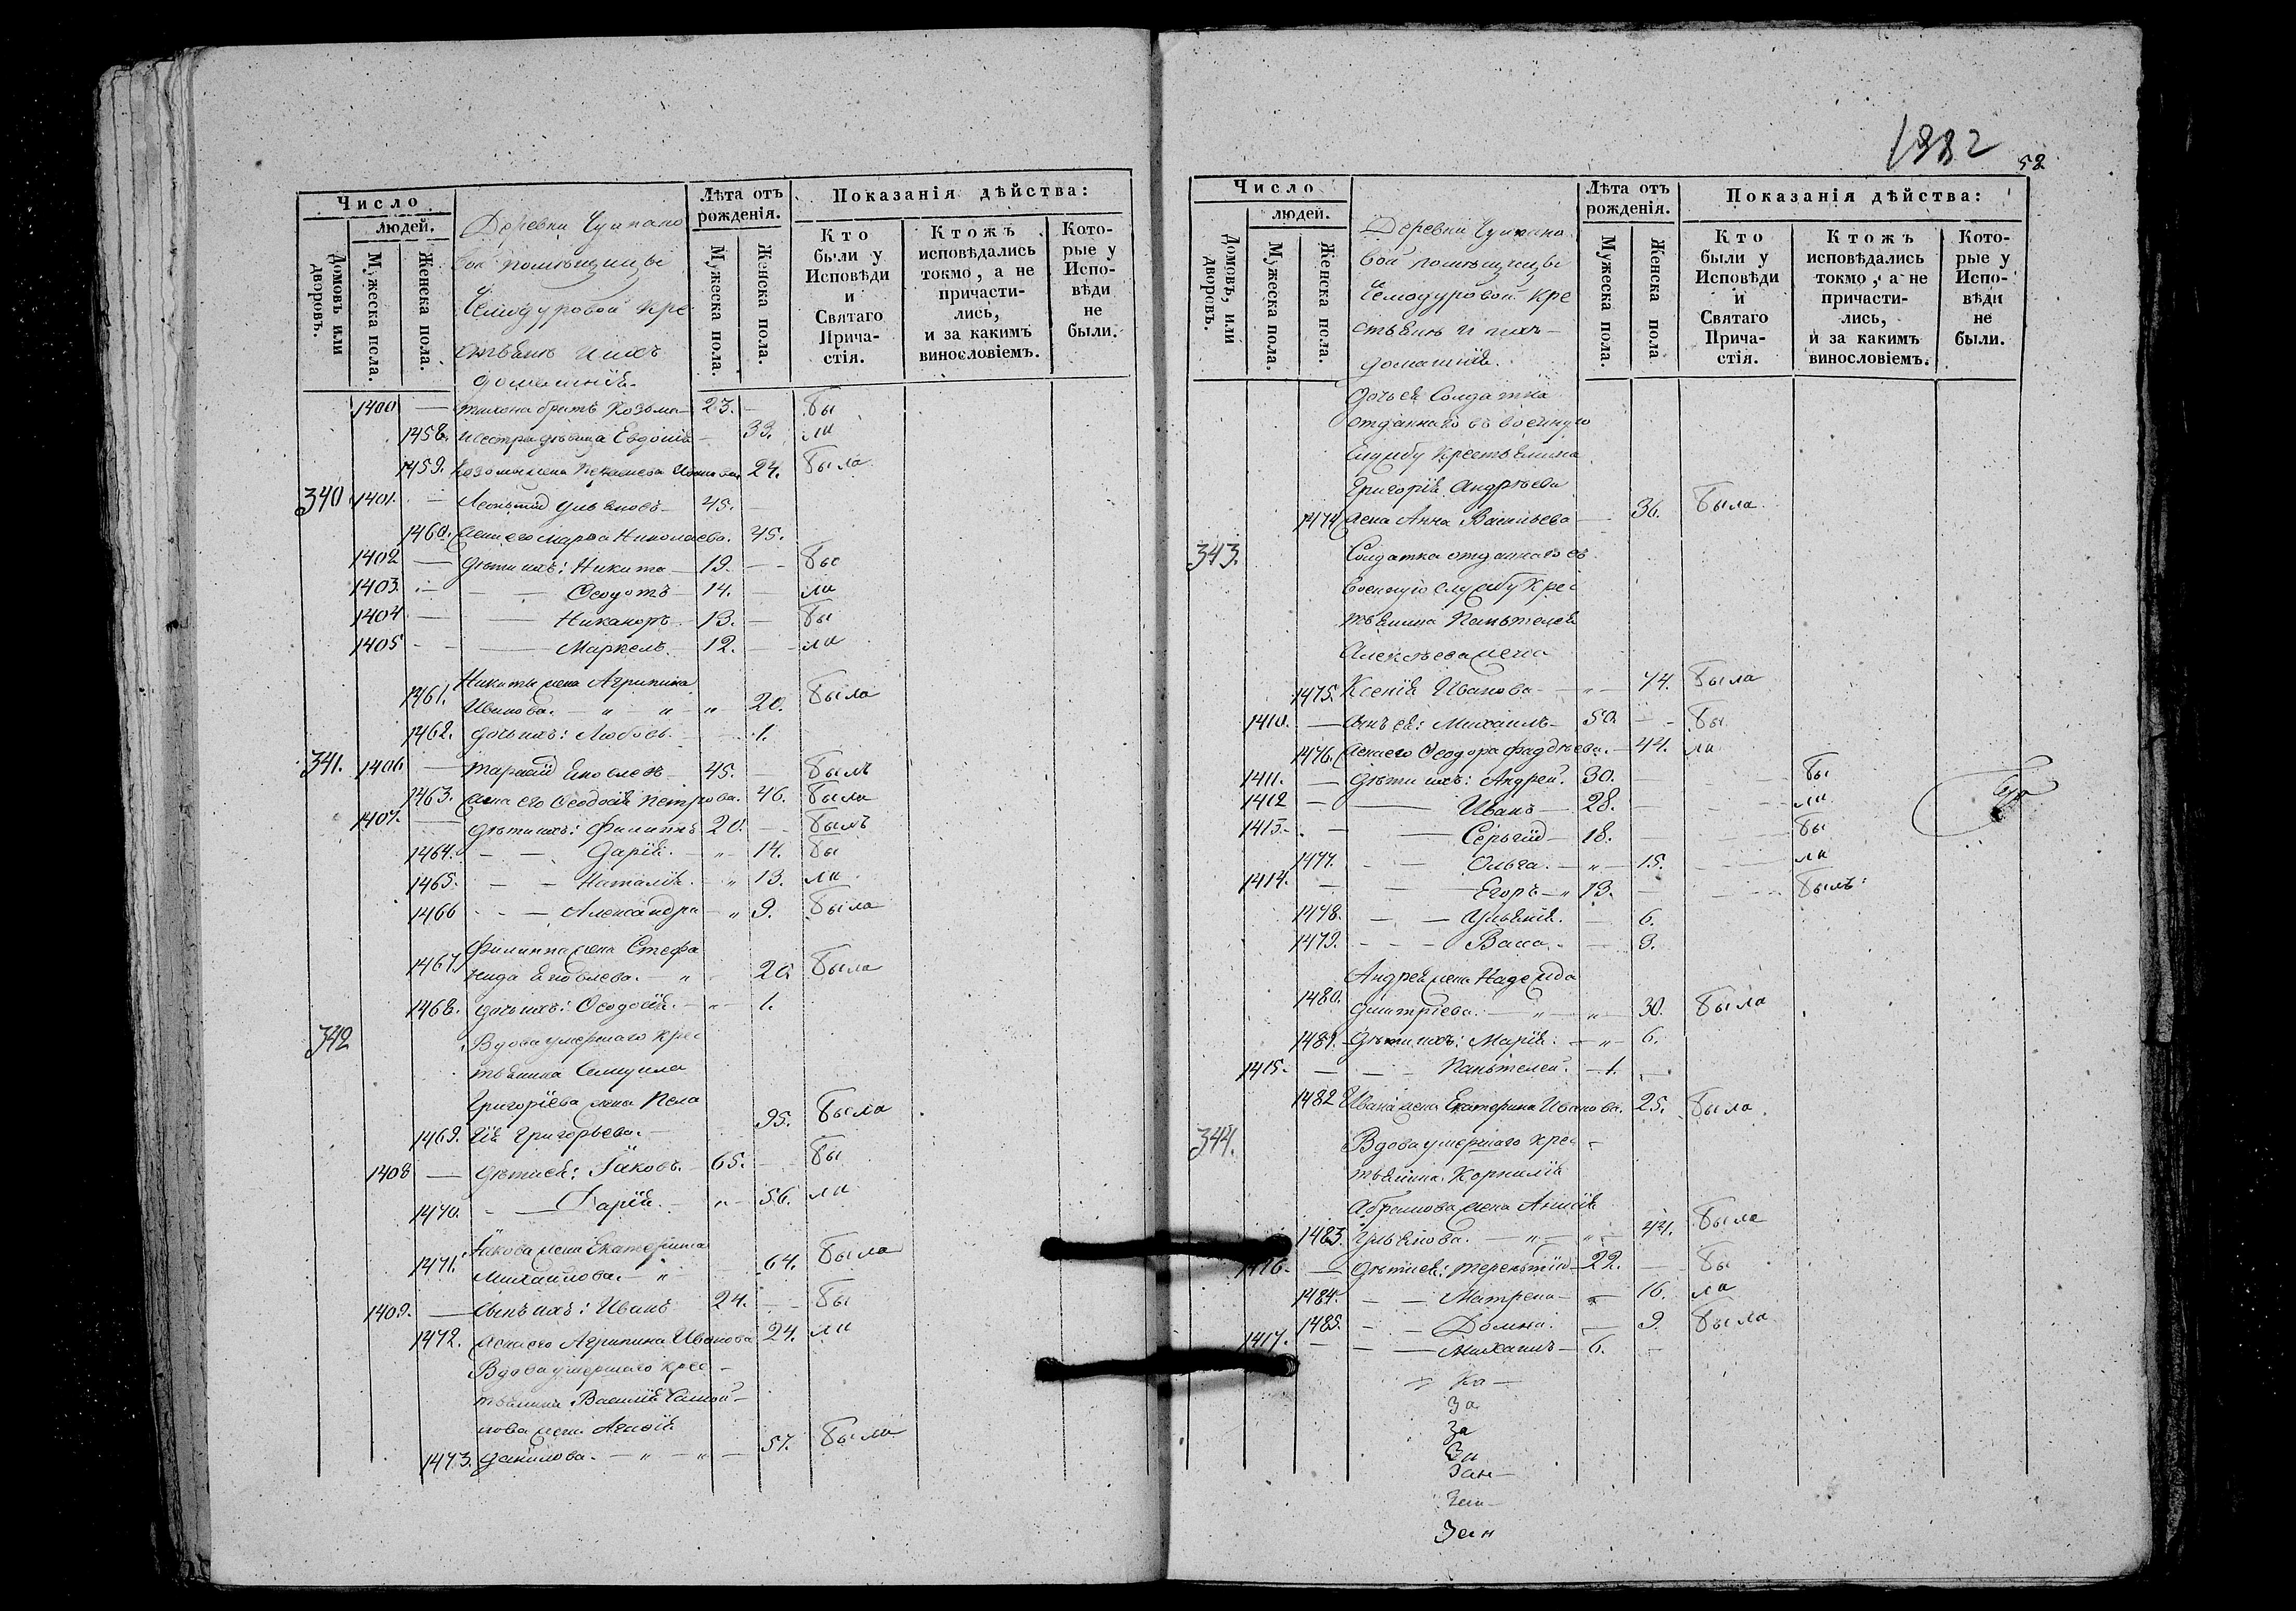 Число
людей.
Домовъ или дворовъ.
Мужеска пола.
Женска пола.
Деревни
вой помѣщицы
Чемодуровой кре
стьянъ и ихъ
домашнія
Лѣта отъ рожденія.
Мужеска пола.
Женска пола.
Показанія дѣйства:
Кто были у Исповѣди и Святаго Прича-стія.
Ктожъ исповѣдались токмо, а не причасти-лись, и за какимъ винословіемъ.
Кото-рые у Испо-вѣди не были.
1400 — Тихона братъ Козьма — 23. — Бы
1458. И сестра дѣвица Евдокія — 33. ли
1459. Козьмы жена Ивановa 24. Была
340 1401. — Леонтій Ульяновъ — 45. —
1460. Жена его Марѳа Николаева. 45.
1402 — Дѣти ихъ: Никита — 19. — Бы
1403. — Ѳеодотъ — 14. — ли
1404 — Никаноръ — 13. — Бы
1405 — Маркелъ — 12. — ли
Никиты жена Агрипина
1461. Иванова. — 20. Была
1462. Дочь ихъ: Любовь — 1.
341. 1406 — Тарасій Яковлевъ — 45. — Былъ
1463. Жена его Ѳеодосія Петрова. 46. Была
1407. — Дѣти ихъ: Филиппъ 20. — Былъ
1464. — Дарія. — 14. Бы
1465. — Наталія. — 13. ли
1466 — Александра — 9. Была
Филиппа жена Стефа
1467. нида Яковлева. — 20. Была
1468. Дочь ихъ: Ѳеодосія. — 1.
342 Вдова умершаго крес
тьянина Самуила
Григоріева жена Пела
1469. гія Григорьева. — 95. Была
1408 — Дѣти ея: Іаковъ. — 65. — Бы
1470. — Дарія. — 56. ли
Іакова жена Екатерина
1471. Михайлова. — 64. Была
1409. — Сынъ ихъ: Иванъ 24. — Бы
1472. Жена его Агрипина Иванова 24. ли
Вдова умершаго крес —
тьянина Василія Самой —
лова жена Агафія
1473. Данилова. — 57. Была
1882
52
Число
людей.
Домовъ, или дворовъ.
Мужеска пола.
Женска пола.
Деревни
вой помѣщицы
Чемодуровой кре
стьянъ и ихъ —
домашнія.
Лѣта отъ рожденія.
Мужеска пола.
Женска пола.
Показанія дѣйства:
Кто были у Исповѣди и Святаго Прича-стія.
Ктожъ исповѣдались токмо, а не причасти-лись, и за какимъ винословіемъ.
Кото-рые у Испо-вѣди не были.
Дочь ея Солдатка
отданнаго въ военную
службу крестьянина
Григорія Андреева
1474 жена Анна Васильева — 36. Была
343. Солдатка отданнаго въ
военную службу крес
тьянина Пантелея
Алексѣева жена
1475. Ксенія Иванова — 74. Была
1410. — Сынъ ея: Михаилъ — 50. — Бы
1476. Жена его Ѳеодора Фаддѣева. — 44. ли
1411. — Дѣти ихъ: Андрей. 30. — Бы
1412 — Иванъ — 28. — ли
1413. — Сергій — 18. — Бы
1477. — Ольга. — 15. — ли
1414. — Егоръ — 13. — Былъ
1478. — Ульянія. — 6.
1479. — Васса. — 3.
Андрея жена Надежда
1480. Дмитріева. — 30. Была
1481. Дѣти ихъ: Марія: — 6.
1415. — Пантелей. — 1. —
1482 Ивана жена Екатерина Иванова. 25. Была
344. Вдова умершаго крес —
тьянина Корнилія
Абрамова жена Анисія
1483. Ульянова. — 44. Была
1416. — Дѣти ея: Терентій — 22. — Бы
1484. — Матрена — 16. ла
1485. — Домна. — 9. Была
1417. — Михаилъ — 6. —
За
За
За
Зан —
Зан